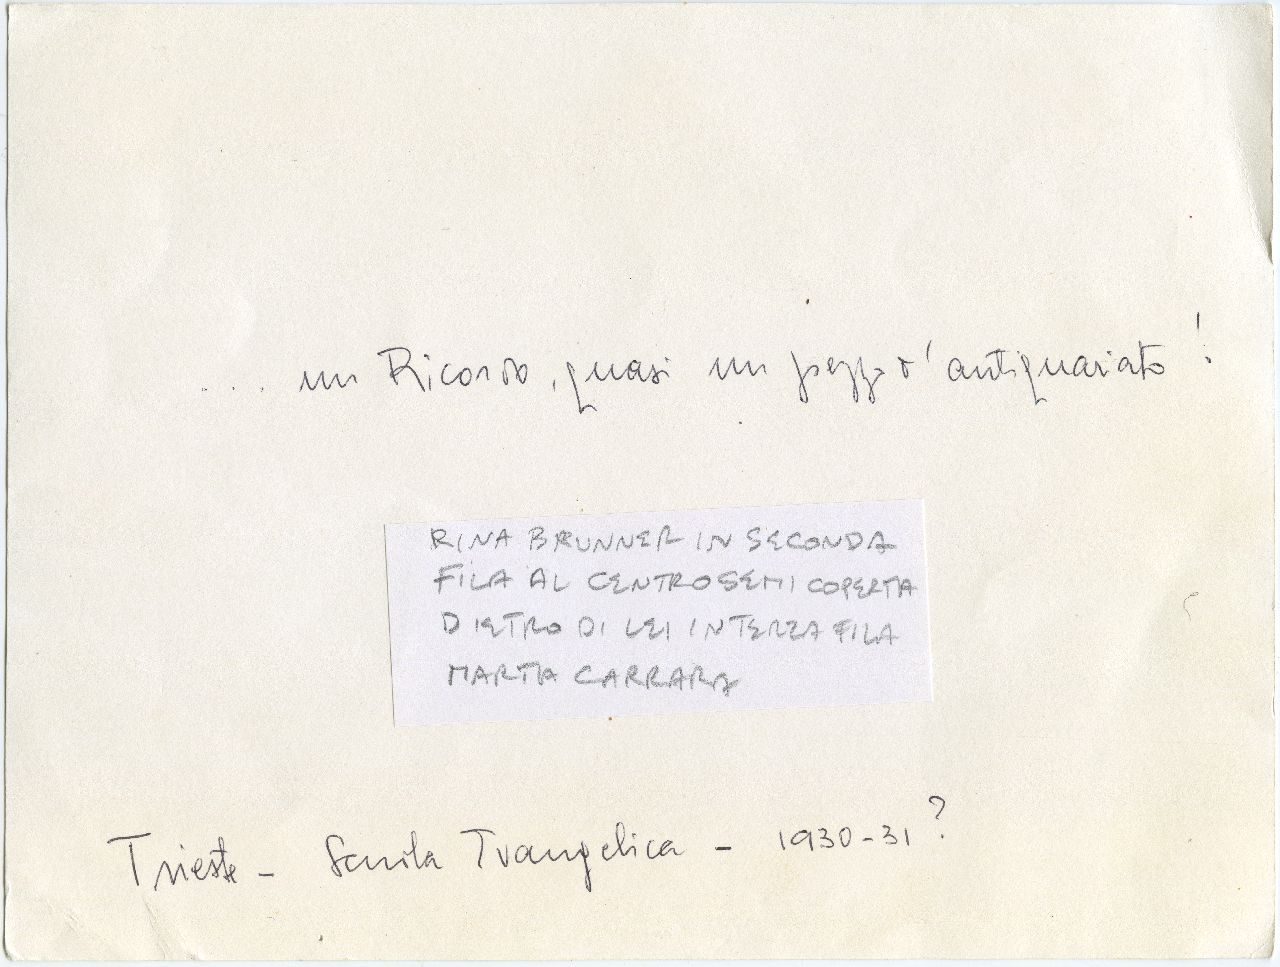 ... un Ricordo, quasi un pezzo d'antiquariato!
RINA BRUNNER IN SECONDA
FILA AL CENTRO SEMICOPERTA
DIETRO DI LEI IN TERZA FILA
MARTA CARRARA
Trieste - Scuola Evangelica - 1930-31?